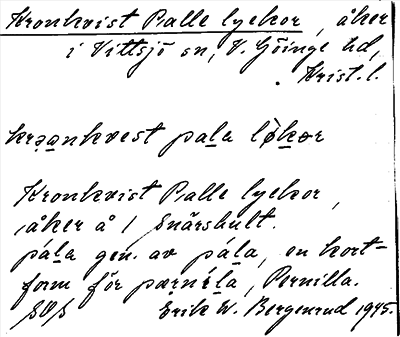 Kronkvist Palle lyckor, åker
i Vittsjö sn, V. Göinge hd,
Krist. l.
krəa̲nkvest pa̲la lo̲kər
Kronkvist Palle lyckor,
åker å 1 Snärshult.
pa̲la gen. av pa̲la, en kort-
form för pærnéla, Pernilla.
Erik W. Bergenrud 1945.